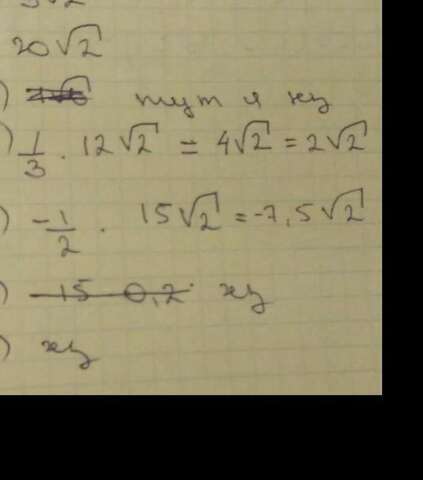 20√2
) тут я ху
) 1/3 · 12√2 = 4√2 = 2√2
) -1/2 · 15√2 = -7,5√2
) 15 0,2 ху
) ху